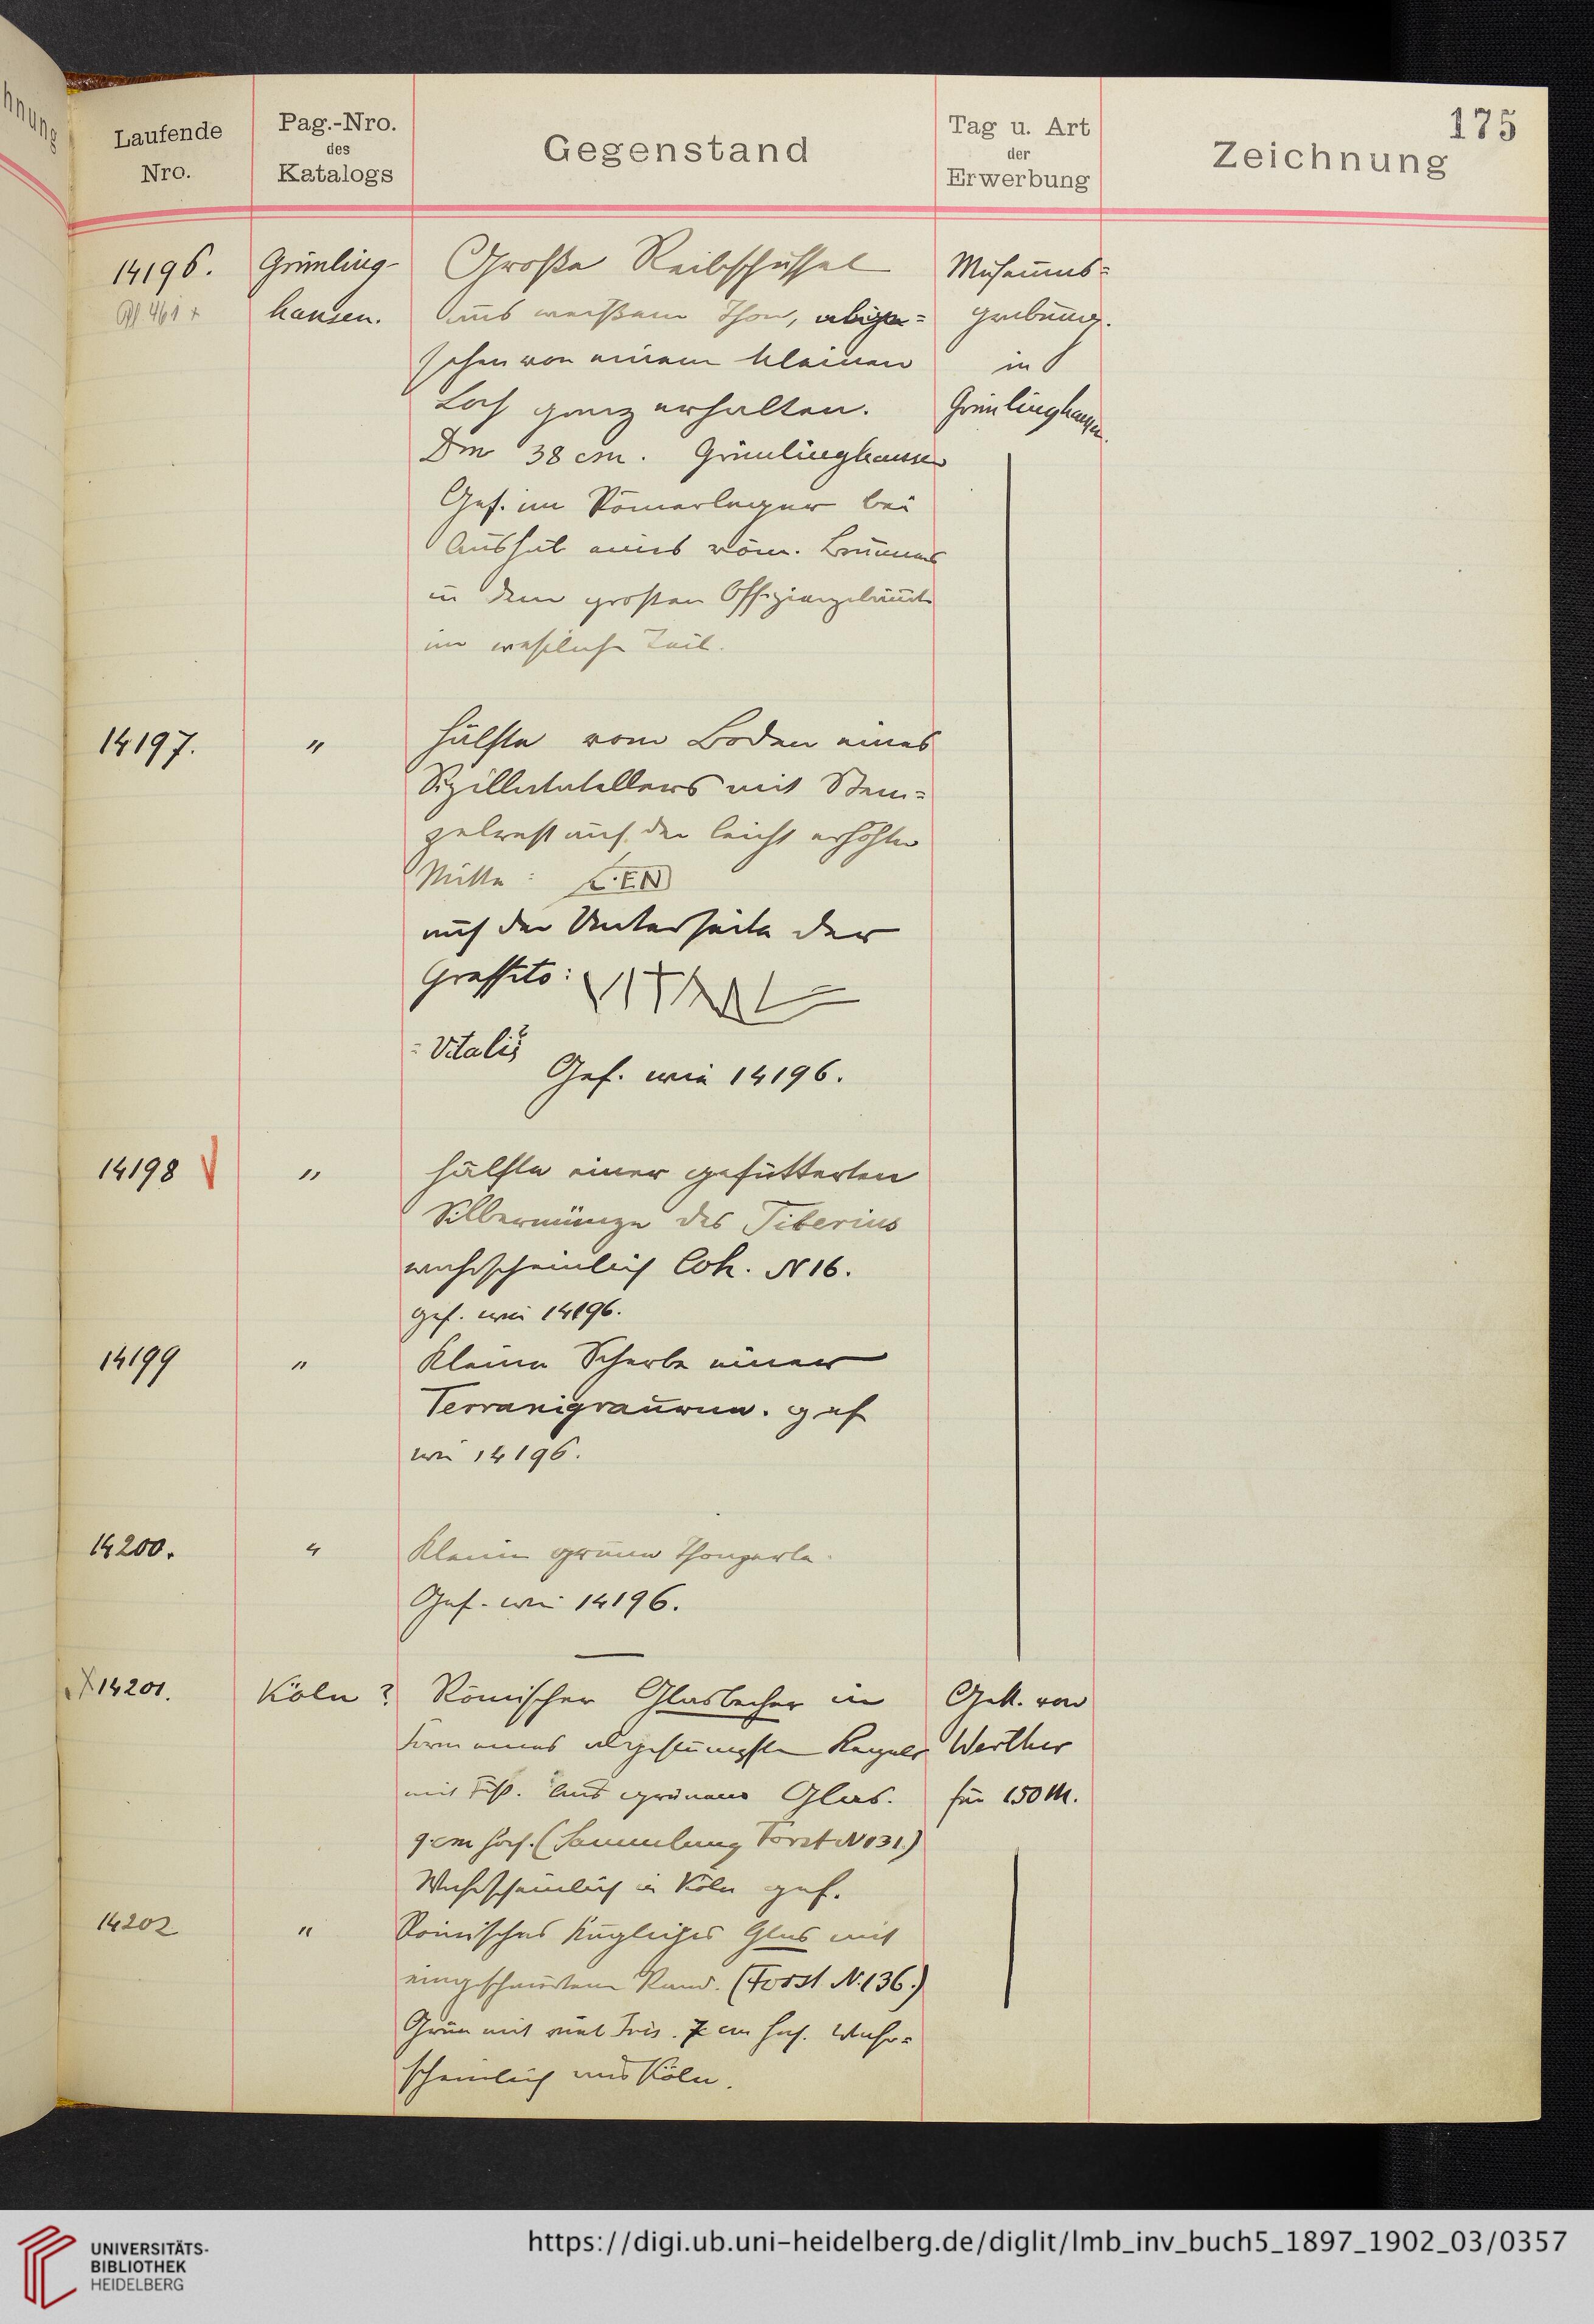 175
Laufende Nro.
Pag.-Nro. des Katalogs
Gegenstand
Tag u. Art der Erwerbung
Zeichnung
14196.
Grimling-
hausen.
Große Reibschüssel
aus weißem Thon, abge=
sehen von einem kleinen
Loch ganz erhalten.
Dm 38 cm. Grimlinghausen
Gef. im Römerlager bei
Aushub eines röm. Brunnens
in dem großen Offiziergebäude
im westlichen Teil.
Museums=
grabung
in
Grimlinghausen
14197.
"
Hälfte vom Boden eines
Sigillatatellers mit Stem=
pelrest auf der leicht erhöhten
Mitte: L·EN
auf der Unterseite der
Graffito:
= Vitalis
Gef. wie 14196.
14198
"
Hälfte einer gefütterten
Silbermünze des Tiberius
wahrscheinlich Coh. N 16.
gef. wie 14196.
14199
"
Kleine Scherbe einer
Terranigraurne. gef
wie 14196.
14200.
"
Kleine grüne Thonperle.
Gef. wie 14196.
X 14201.
Köln ?
Römischer Glasbecher in
Form eines abgestumpften Kegels
mit Fuß. Aus grünem Glas.
9 cm hoch. (Sammlung Forst N 131.)
Wahrscheinlich in Köln gef.
Gek. von
Werther
für 150 M.
14202
"
Römisches kugliges Glas mit
eingeschnürtem Rand. (Forst N. 136.)
Grün mit viel Iris. 7 cm hoch. Wahr=
scheinlich aus Köln.
UNIVERSITÄTS-
BIBLIOTHEK
HEIDELBERG
https://digi.ub.uni-heidelberg.de/diglit/lmb_inv_buch5_1897_1902_03/0357